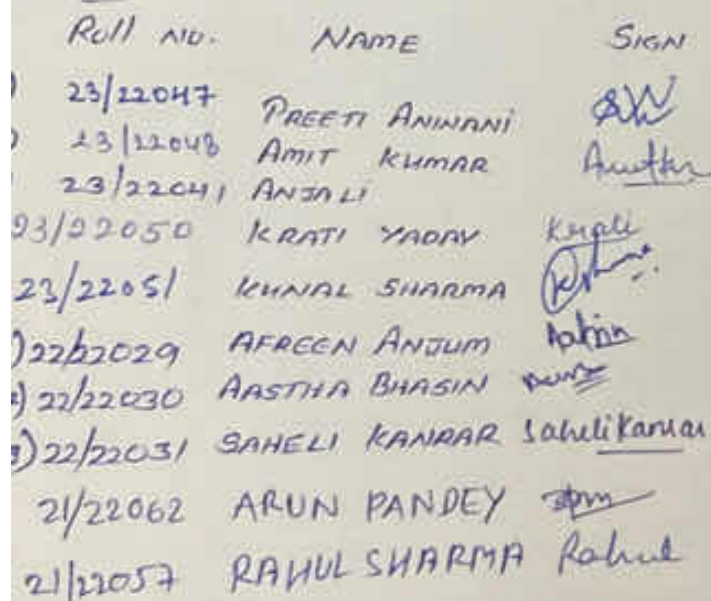 Roll No. NAME SIGN
) 23/22047 PREETI ANINANI
) 23/22048 AMIT KUMAR
23/22041 ANJALI
23/22050 KRATI YADAV Krati
23/22051 KUNAL SHARMA
) 22/22029 AFREEN ANJUM
) 22/22030 AASTHA BHASIN
) 22/22031 SAHELI KANRAR Saheli Kanrar
21/22062 ARUN PANDEY
21/22057 RAHUL SHARMA Rahul